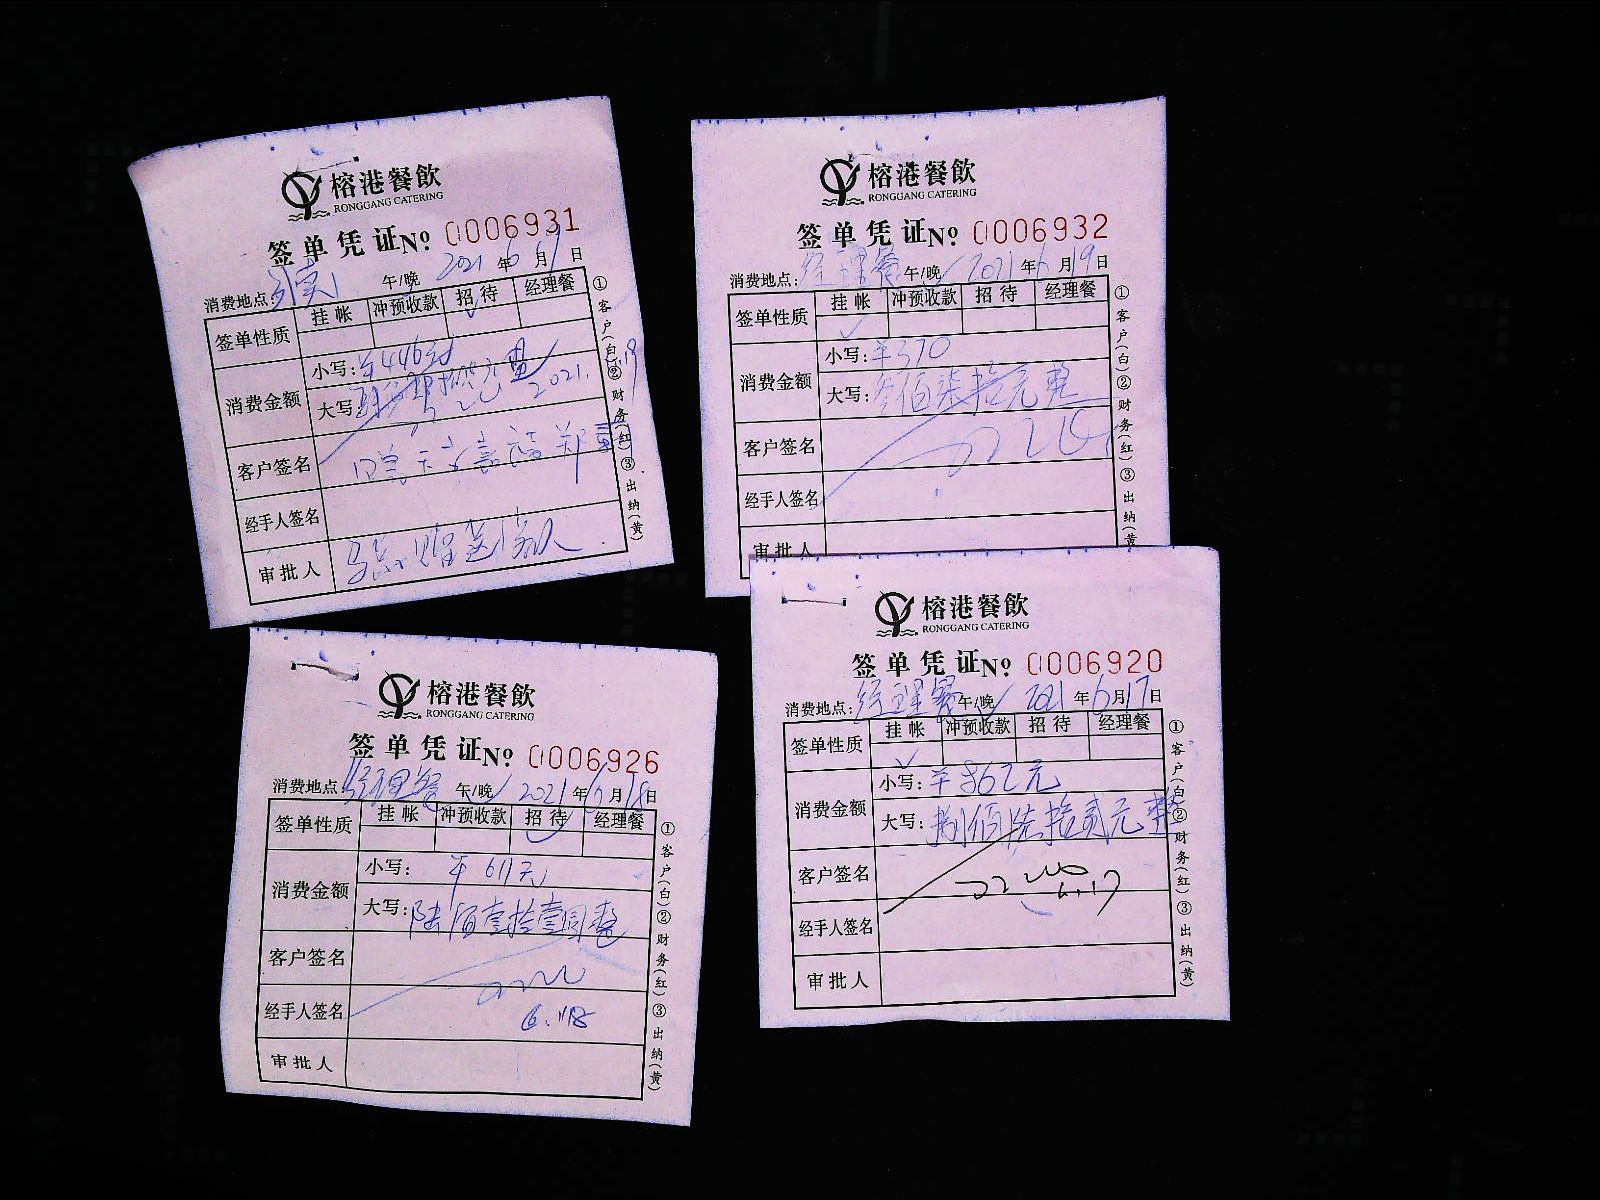 榕港餐飲
RONGGANG CATERING
签单凭证№ 0006931
消费地点: 午/晚 2021年6月19日
签单性质 挂帐 冲预收款 招待 经理餐
消费金额
小写:¥446元
大写: 元整
2021.
客户签名
经手人签名
审批人
①客户(白)②财务(红)③出纳(黄)
榕港餐飲
RONGGANG CATERING
签单凭证№ 0006932
消费地点:经理餐 午/晚 2021年6月19日
签单性质 挂帐 冲预收款 招待 经理餐
消费金额
小写:¥370
大写:叁佰柒拾元整
客户签名
经手人签名
审批人
①客户(白)②财务(红)③出纳(黄
榕港餐飲
RONGGANG CATERING
签单凭证№ 0006926
消费地点:经理餐 午/晚 2021年6月18日
签单性质 挂帐 冲预收款 招待 经理餐
消费金额
小写:¥611元
大写:陆佰壹拾壹圆整
客户签名
经手人签名 6.18
审批人
①客户(白)②财务(红)③出纳(黄)
榕港餐飲
RONGGANG CATERING
签单凭证№ 0006920
消费地点:经理餐 午/晚 2021年6月17日
签单性质 挂帐 冲预收款 招待 经理餐
消费金额
小写:¥862元
大写:捌佰陆拾贰元整
客户签名 6.17
经手人签名
审批人
①客户(白)②财务(红)③出纳(黄)